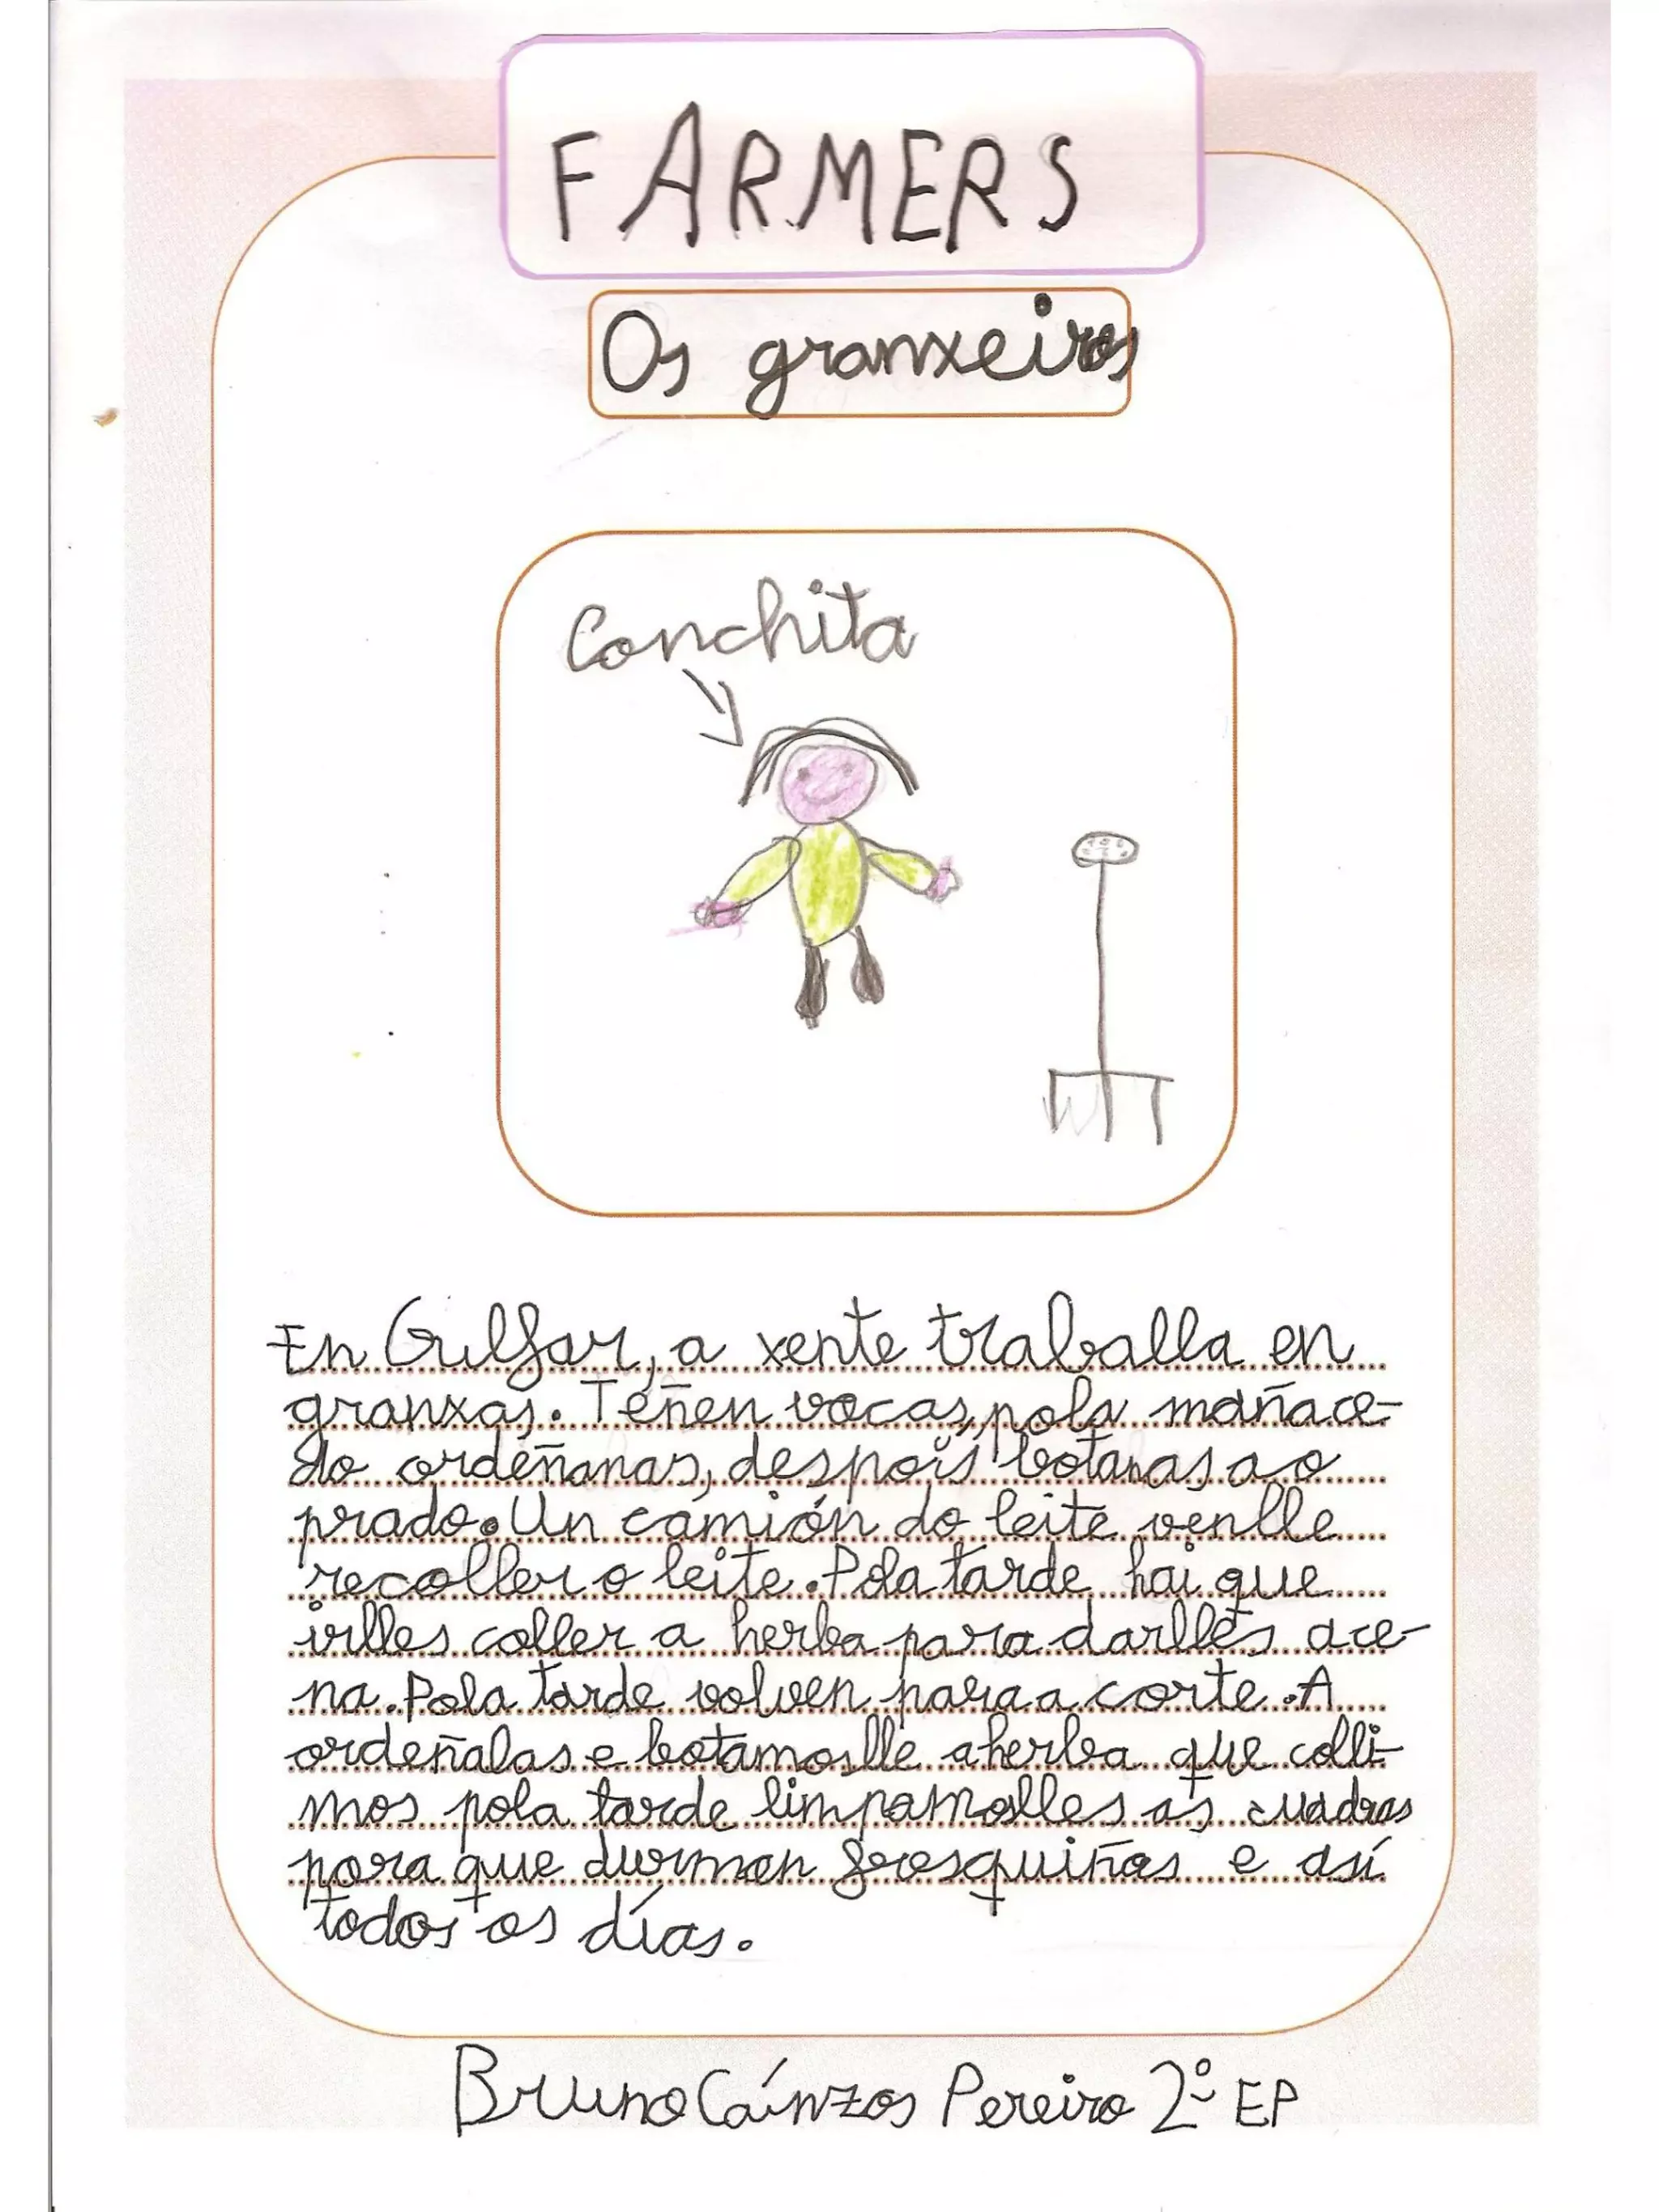 FARMERS
Os granxeiros
Conchita
En Gulfar, a xente traballa en
granxas. Teñen vacas, pola mañace-
do ordéñanas, despois botanas ao
prado. Un camión do leite venlle
recoller o leite. Pola tarde hai que
irlles coller a herba para darlles ace-
na. Pola tarde volven para a corte. A
ordeñalas e botamoslle a herba que colli-
mos pola tarde limpamoslles as cuadras
para que durman fresquiñas e así
todos os días.
Bruno Cáinzos Pereiro 2º EP